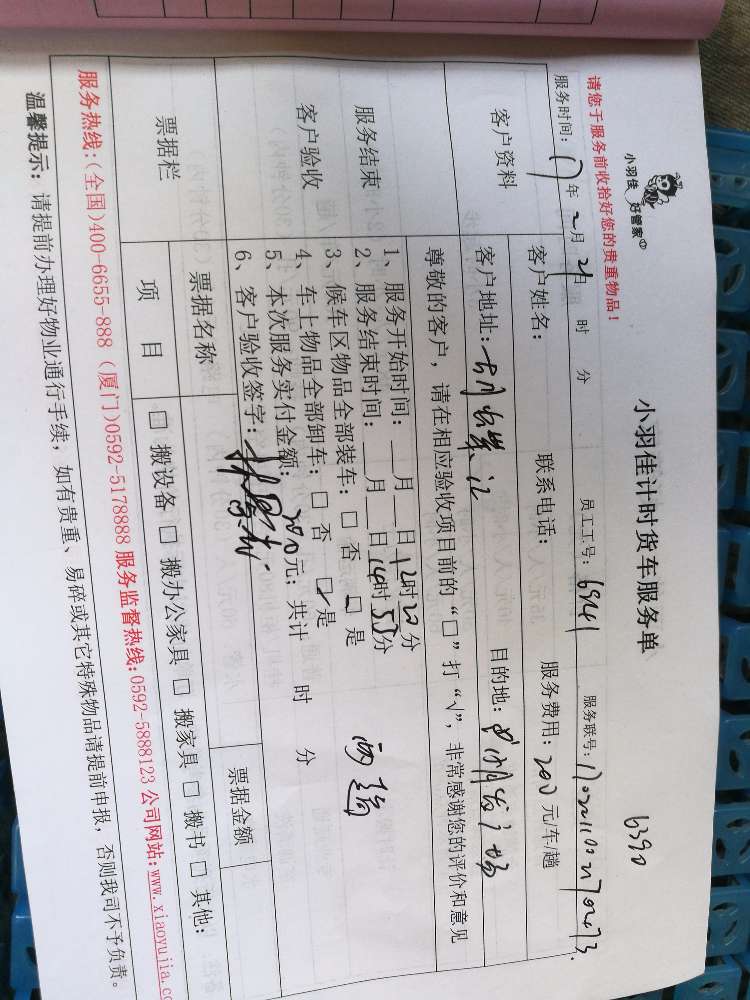 小羽佳 好管家
小羽佳计时货车服务单
6390
请您于服务前收拾好您的贵重物品！
服务时间: 17年2月21日 时 分 员工工号: 6941 服务联号:
客户资料
客户姓名: 联系电话: 服务费用: 200元/车/趟
客户地址: 目的地:
尊敬的客户，请在相应验收项目前的“□”打“√”，非常感谢您的评价和意见
服务结束
客户验收
1、服务开始时间: __月__日12时20分
2、服务结束时间: __月__日14时53分
3、候车区物品全部装车: □ 否 □ 是
两趟
4、车上物品全部卸车: □ 否 □ 是
5、本次服务实付金额: 200元; 共计 时 分
6、客户验收签字:
票据栏
票据名称 票据金额
项目 □ 搬设备 □ 搬办公家具 □ 搬家具 □ 搬书 □ 其他:
服务热线:(全国)400-6655-888 (厦门)0592-5178888 服务监督热线:0592-5888123 公司网站:www.xiaoyujia.co
温馨提示: 请提前办理好物业通行手续，如有贵重、易碎或其它特殊物品请提前申报，否则我司不予负责。